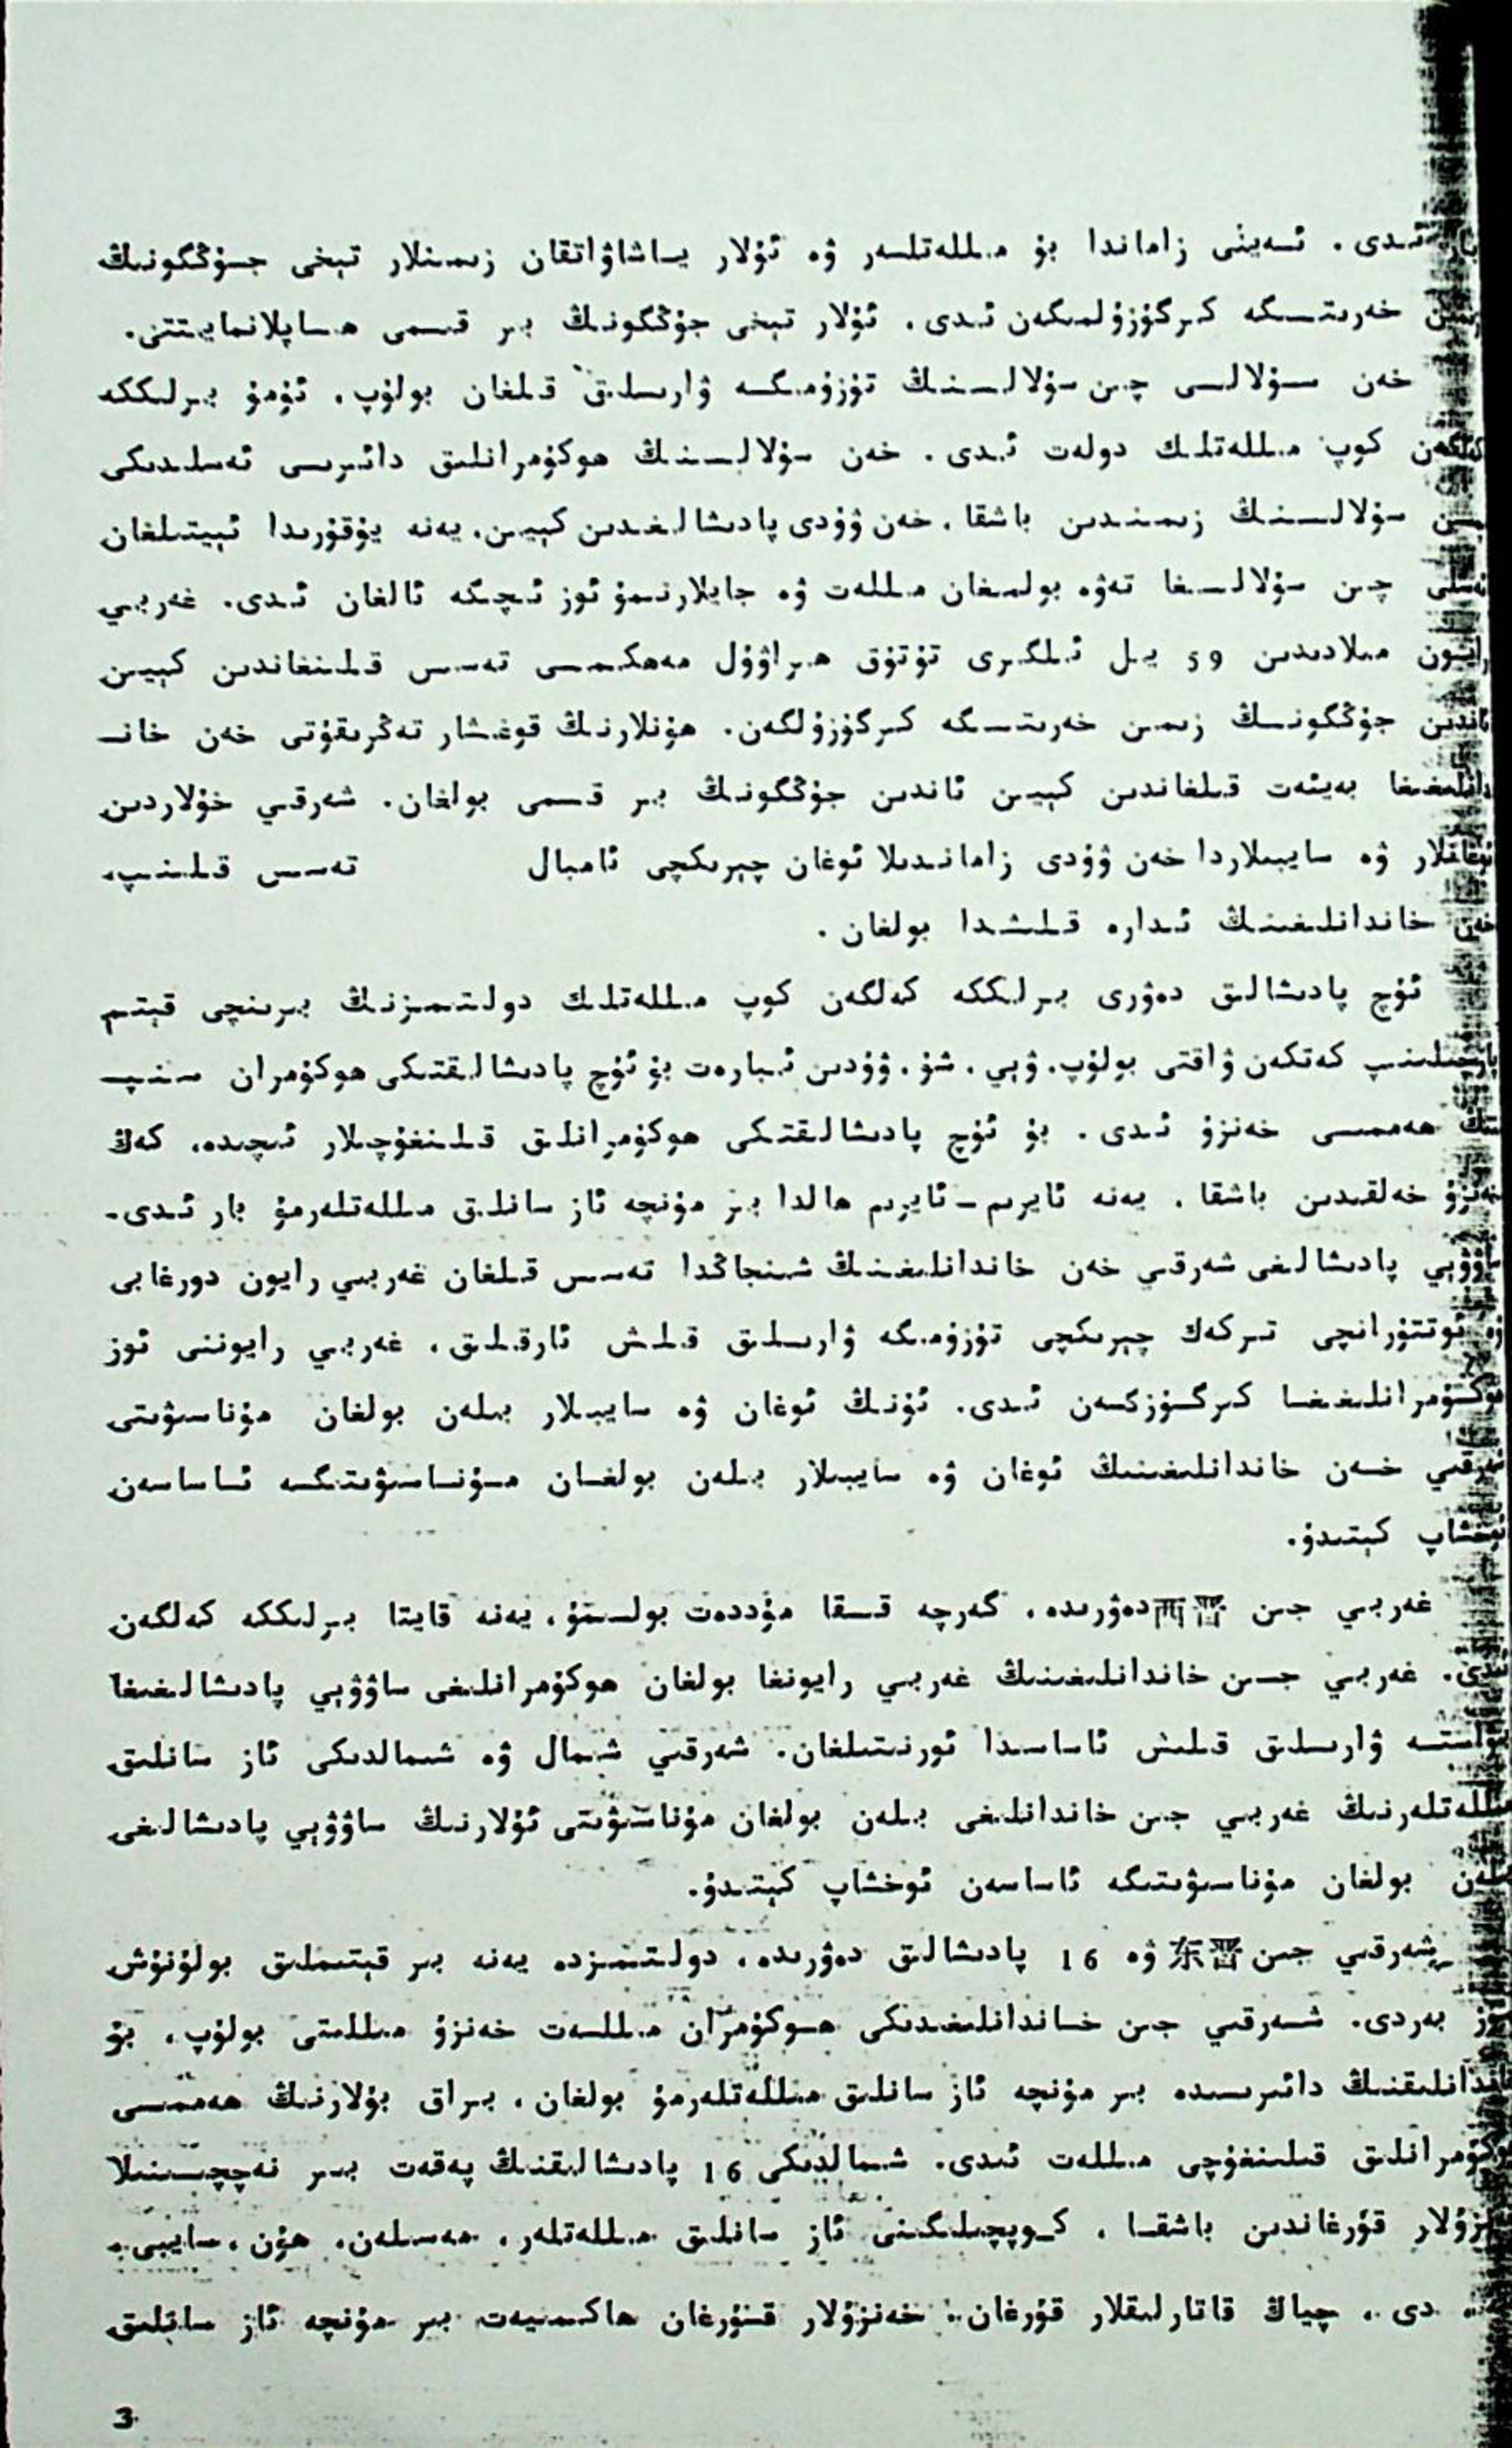 ئىدى. ئەينى زاماندا بۇ مىللەتلەر ۋە ئۇلار ياشاۋاتقان زىمىنلار تېخى جۇڭگونىڭ
خەرىتىسىگە كىرگۈزۈلمىگەن ئىدى. ئۇلار تېخى جۇڭگونىڭ بىر قىسمى ھىساپلانمايىتتى.
خەن سۇلالىسى چىن سۇلالىسىنىڭ تۈزۈمىگە ۋارىسلىق قىلغان بولۇپ، ئۇمۇ بىرلىككە
كەلگەن كوپ مىللەتلىك دولەت ئىدى. خەن سۇلالىسىنىڭ ھوكۇمرانلىق دائىرىسى ئەسلىدىكى
سۇلالىسىنىڭ زىمىنىدىن باشقا، خەن ۋۇدى پادىشالىغىدىن كېيىن، يەنە يۇقۇرىدا ئېيتىلغان
چىن سۇلالىسىغا تەۋە بولمىغان مىللەت ۋە جايلارنىمۇ ئوز ئىچىگە ئالغان ئىدى. غەربىي
رايون مىلادىدىن 59 يىل ئىلگىرى تۇتۇق ھىراۋۇل مەھكىمىسى تەسىس قىلىنغاندىن كېيىن
ئاندىن جۇڭگونىڭ زىمىن خەرىتىسىگە كىرگۈزۈلگەن. ھۇنلارنىڭ قوغىشار تەڭرىقۇتى خەن خانـ
دانلىغىغا بەيئەت قىلغاندىن كېيىن ئاندىن جۇڭگونىڭ بىر قىسمى بولغان. شەرقىي خۇلاردىن
ئوغانلار ۋە سايبىلاردا خەن ۋۇدى زامانىدىلا ئوغان چېرىكچى ئامبال تەسىس قىلىنىپ،
خەن خاندانلىغىنىڭ ئىدارە قىلىشىدا بولغان.
ئۈچ پادىشالىق دەۋرى بىرلىككە كەلگەن كوپ مىللەتلىك دولىتىمىزنىڭ بىرىنچى قېتىم
پارچىلىنىپ كەتكەن ۋاقتى بولۇپ، ۋېي، شۇ، ۋۇدىن ئىبارەت بۇ ئۈچ پادىشالىقتىكى ھوكۇمران سىنىپـ
نىڭ ھەممىسى خەنزۇ ئىدى. بۇ ئۈچ پادىشالىقتىكى ھوكۇمرانلىق قىلىنغۇچىلار ئىچىدە، كەڭ
خەنزۇ خەلقىدىن باشقا، يەنە ئايرىم-ئايرىم ھالدا بىر مۇنچە ئاز سانلىق مىللەتلەرمۇ بار ئىدى.
ساۋۋېي پادىشالىغى شەرقىي خەن خاندانلىغىنىڭ شىنجاڭدا تەسىس قىلغان غەربىي رايون دورغابى
ۋە ئوتتۇرانچى تىركەك چېرىكچى تۈزۈمىگە ۋارىسلىق قىلىش ئارقىلىق، غەربىي رايوننى ئوز
ھوكۇمرانلىغىغا كىرگۈزگەن ئىدى. ئۇنىڭ ئوغان ۋە سايبىلار بىلەن بولغان مۇناسىۋىتى
شەرقىي خەن خاندانلىغىنىڭ ئوغان ۋە سايبىلار بىلەن بولغان مۇناسىۋىتىگە ئاساسەن
ئوخشاپ كېتىدۇ.
غەربىي جىن 西晋دەۋرىدە، گەرچە قىسقا مۇددەت بولسىمۇ، يەنە قايتا بىرلىككە كەلگەن
ئىدى. غەربىي جىن خاندانلىغىنىڭ غەربىي رايونغا بولغان ھوكۇمرانلىغى ساۋۋېي پادىشالىغىغا
ۋارىسلىق قىلىش ئاساسىدا ئورنىتىلغان. شەرقىي شىمال ۋە شىمالدىكى ئاز سانلىق
مىللەتلەرنىڭ غەربىي جىن خاندانلىغى بىلەن بولغان مۇناسىۋىتى ئۇلارنىڭ ساۋۋېي پادىشالىغى
بىلەن بولغان مۇناسىۋىتىگە ئاساسەن ئوخشاپ كېتىدۇ.
شەرقىي جىن东晋 ۋە 16 پادىشالىق دەۋرىدە، دولىتىمىزدە يەنە بىر قېتىملىق بولۇنۇش
يۈز بەردى. شەرقىي جىن خاندانلىغىدىكى ھوكۇمران مىللەت خەنزۇ مىللىتى بولۇپ، بۇ
خاندانلىقنىڭ دائىرىسىدە بىر مۇنچە ئاز سانلىق مىللەتلەرمۇ بولغان، بىراق بۇلارنىڭ ھەممىسى
ھوكۇمرانلىق قىلىنغۇچى مىللەت ئىدى. شىمالدىكى 16 پادىشالىقنىڭ پەقەت بىر نەچچىسىنىلا
خەنزۇلار قۇرغاندىن باشقا، كوپچىلىگىنى ئاز سانلىق مىللەتلەر، مەسىلەن، ھۇن، سايبى،
دى، چياڭ قاتارلىقلار قۇرغان. خەنزۇلار قۇرغان ھاكىمىيەت بىر مۇنچە ئاز سانلىق
3